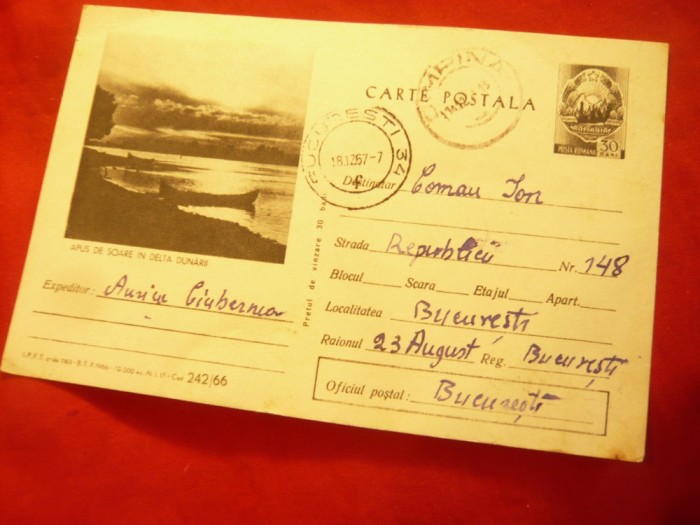 CARTE POSTALA
POSTA ROMANA 30 BANI
BUCURESTI 34
18.12.67-7
Destinatar Coman Ion
Strada Republicii Nr. 148
Blocul Scara Etajul Apart.
Localitatea București
Raionul 23 August Reg. București
Oficiul poștal: București
Prețul de vînzare 30 bani
APUS DE SOARE IN DELTA DUNĂRII
Expeditor:
242/66